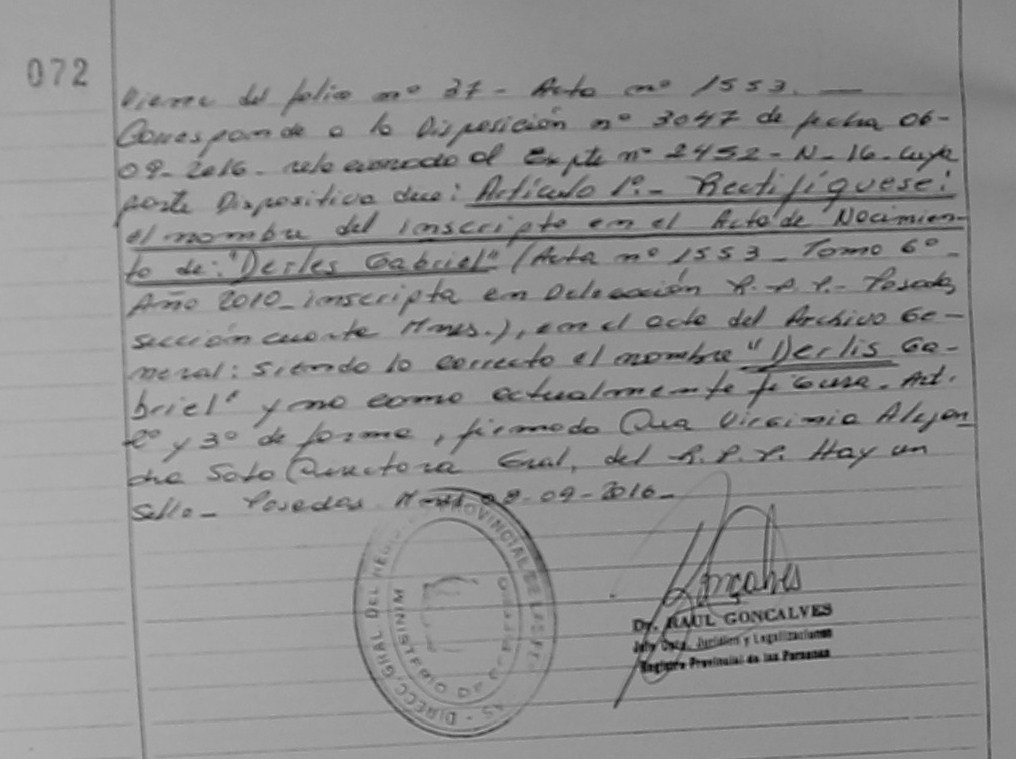 072
Viene del folio nº 37 - Acta nº 1553. —
Corresponde a la Disposición nº 3047 de fecha 06-
09-2016- relacionado al Expte nº 2452-N-16- cuya
parte Dispositiva dice: Artículo 1º.- Rectifíquese:
el nombre del inscripto en el Acta de Nacimien-
to de: "Derles Gabriel" (Acta nº 1553 - Tomo 6º -
Año 2010 - inscripta en Delegación R.P.P.- Posadas,
sección cuarta Mnes.), en el acta del Archivo Ge-
neral: siendo lo correcto el nombre "Derlis Ga-
briel" y no como actualmente figura. Art.
2º y 3º de forma, firmado Virginia Alejan-
dra Soto Directora Gral. del R.P.P. Hay un
sello - Posadas. Mnes 08-09-2016-
DIRECC. GRAL. DEL PROVINCIAL DE LAS
MINISTERIO DE GOBIERNO
Goncalves
Dr. RAUL GONCALVES
Jefe Dpto. Jurídico y Legalizaciones
Registro Provincial de las Personas